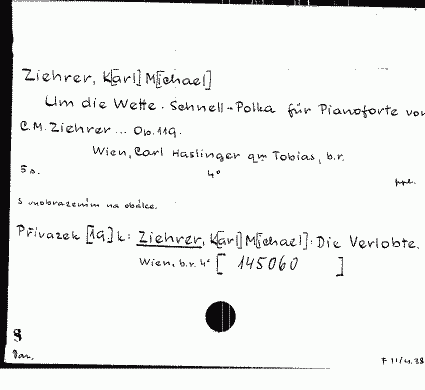 Ziehrer, K[arl] M[ichael]
Um die Wette. Schnell-Polka für Pianoforte von
C.M. Ziehrer ... Op. 119.
Wien, Carl Haslinger qm Tobias, b.r.
5 s. 4°
S vyobrazením na obálce.
Přívazek [19.] k: Ziehrer, K[arl] M[ichael]: Die Verlobte.
Wien, b.r. 4° [ 145060 ]
8